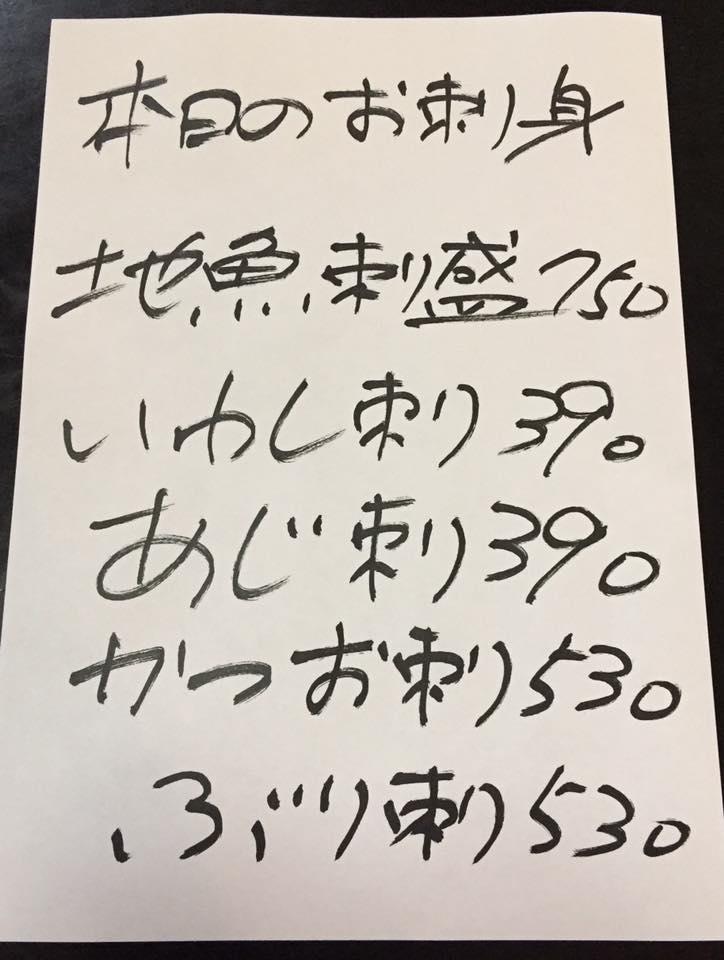 本日のお刺身
地魚刺盛750
いわし刺390
あじ刺390
かつお刺530
ぶり刺530